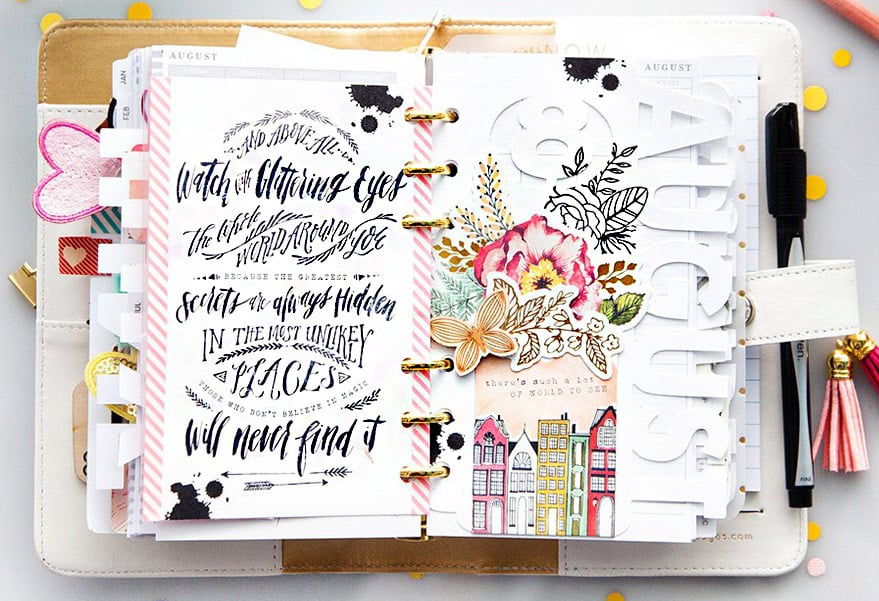 AUGUST
JAN
FEB
...AND ABOVE ALL...
Watch with Glittering Eyes
the whole
WORLD AROUND YOU
BECAUSE THE GREATEST
secrets are always Hidden
IN THE MOST UNLIKEY
PLACES
THOSE WHO DON'T BELIEVE IN MAGIC
Will never find it
NOW
AUGUST
8
AUGUST
there's such a lot
OF WORLD TO SEE
FINE